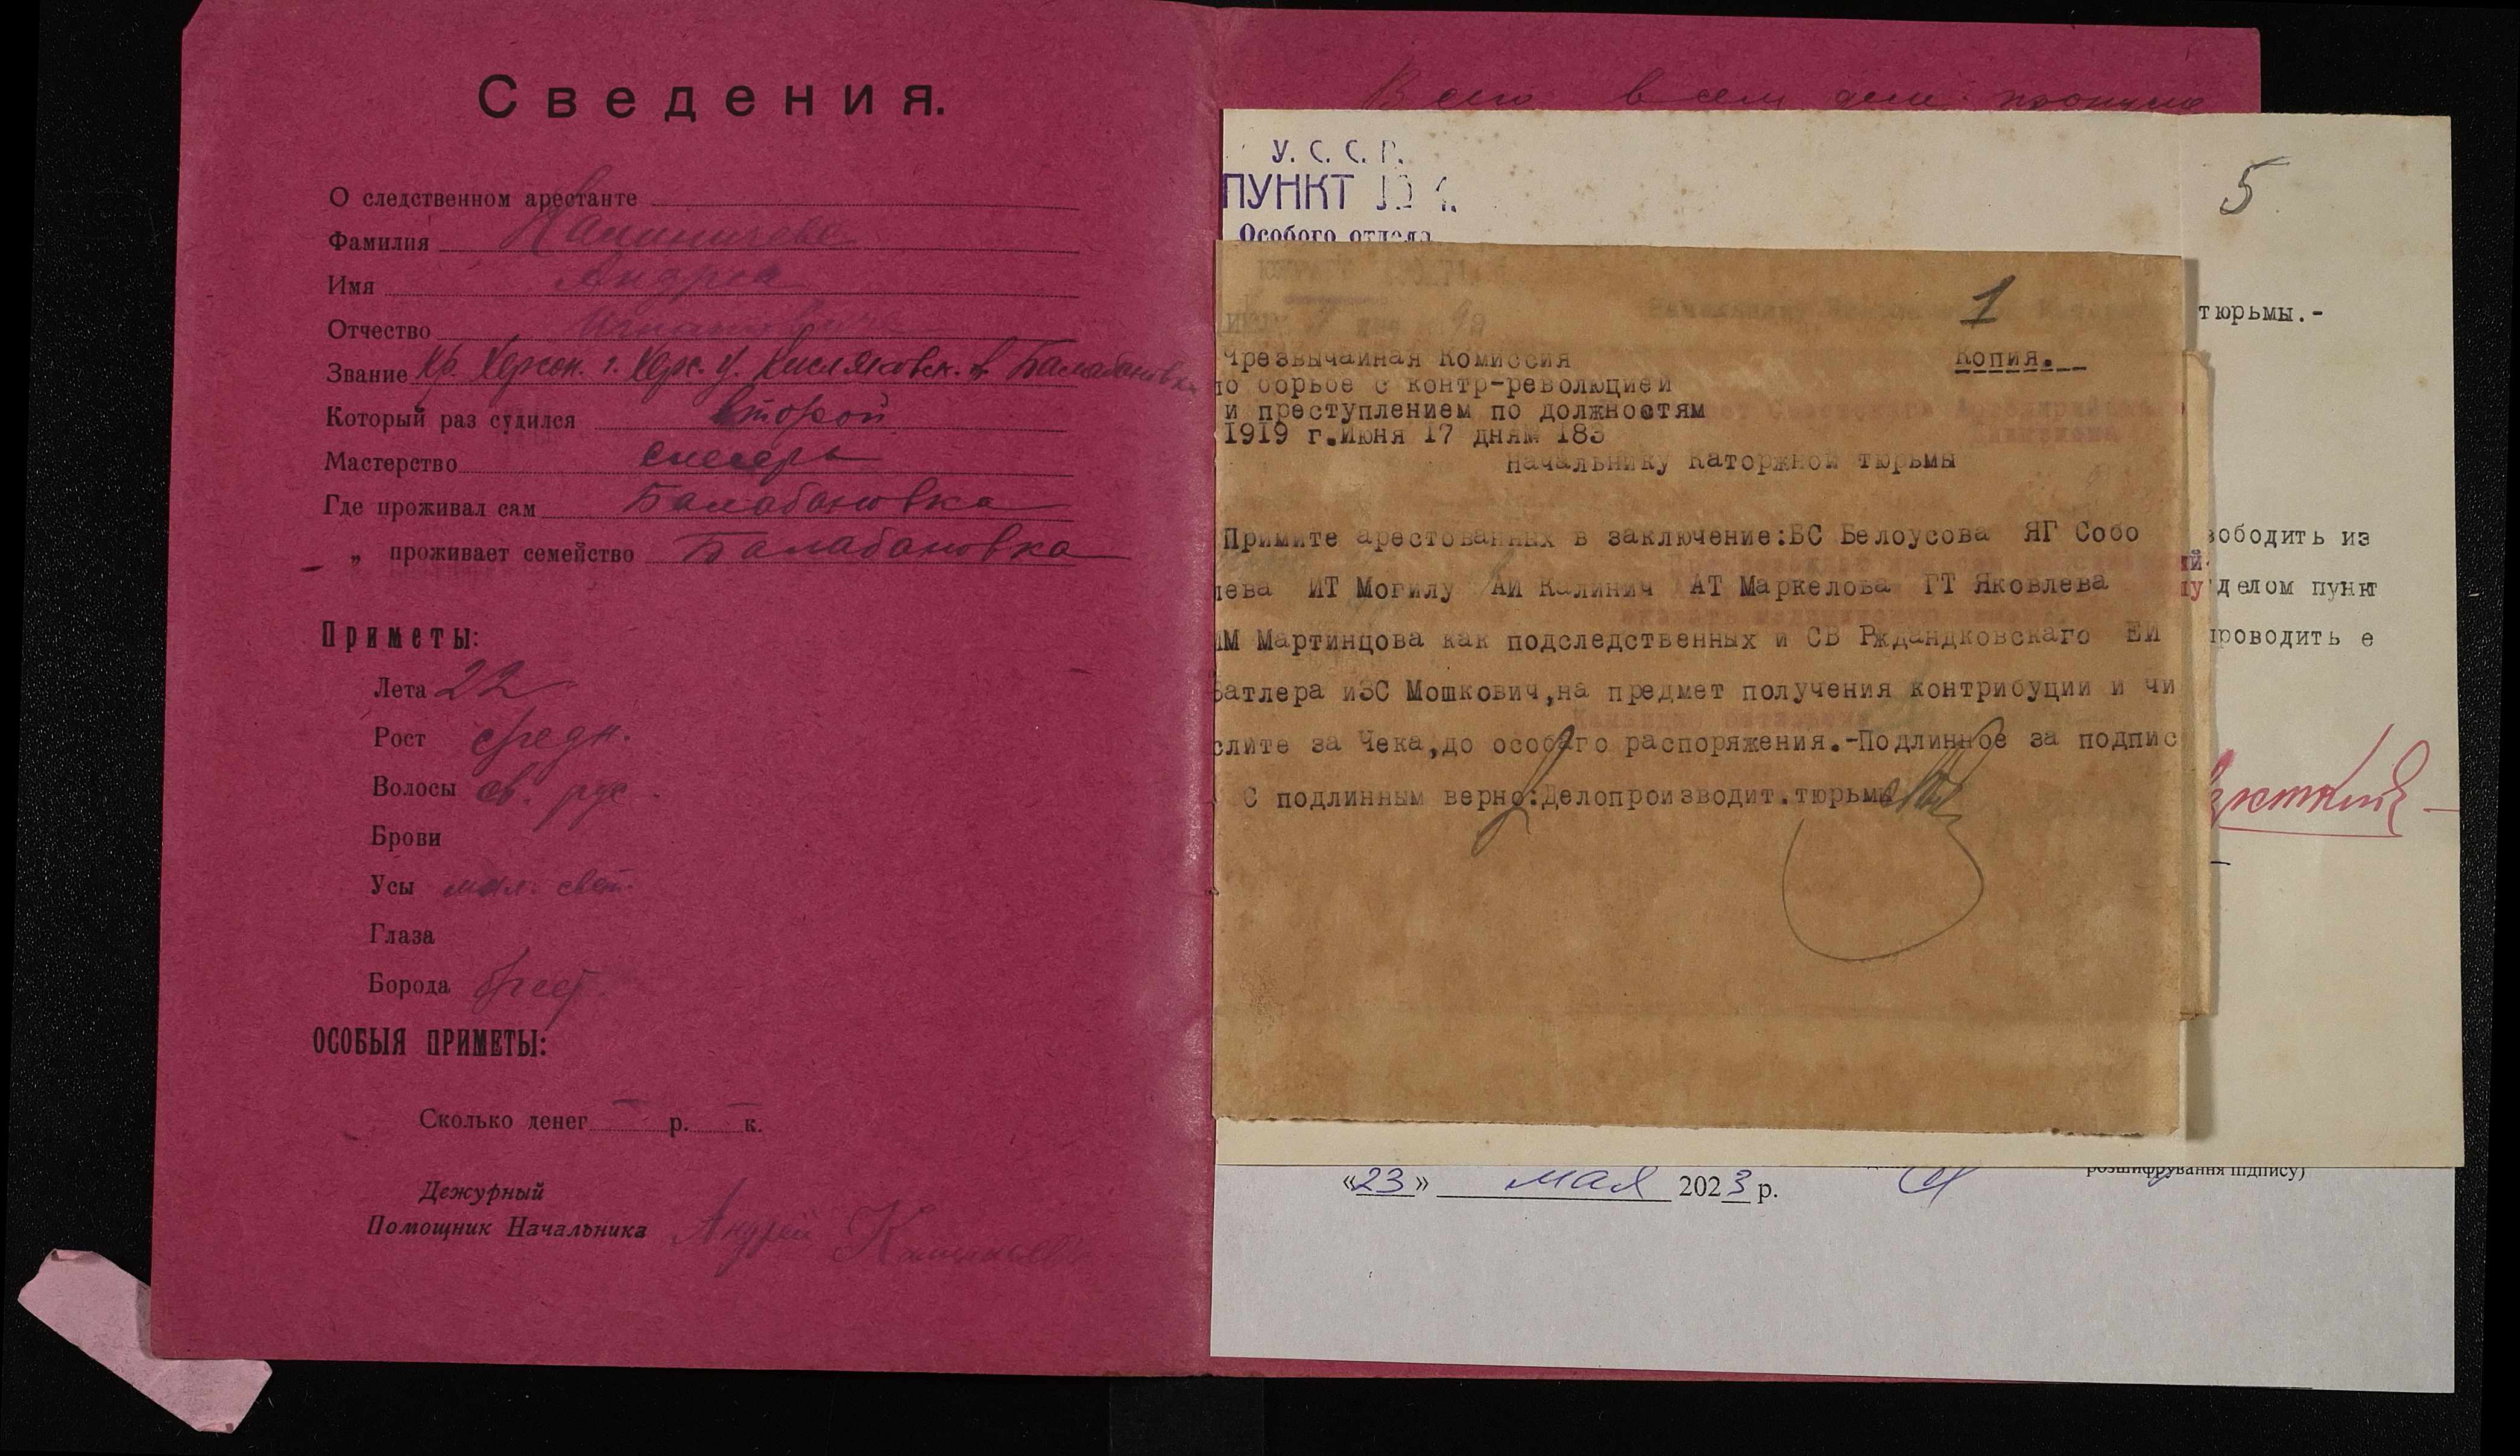 Сведения.
О следственном арестанте
Фамилия Калиничева
Имя Андрея
Отчество Игнатовича
Звание Кр. Херсон. г. Херс. у. Кисляковск. в. Балабановка
Который раз судился второй
Мастерство слесарь
Где проживал сам Балабановка
„ проживает семейство Балабановка
Приметы:
Лета 22
Рост средн.
Волосы св. рус.
Брови
Усы мал. свет.
Глаза
Борода бреет.
ОСОБЫЯ ПРИМЕТЫ:
Сколько денег — р. — к.
Дежурный
Помощник Начальника Андрей
Всего в сем деле
У. С. С. Р.
ПУНКТ № 1.
Особого отдела
5
тюрьмы.-
вободить из
делом пункт
проводить е
1
Чрезвычайная Комиссия
Копия.
по борьбе с контр-революцией
и преступлением по должностям
1919 г.Июня 17 дня№ 183
Начальнику Каторжной тюрьмы
Примите арестованных в заключение:БС Белоусова ЯГ Собо
лева ИТ Могилу АИ Калинич АТ Маркелова ГТ Яковлева
ИМ Мартинцова как подследственных и СВ Рждандковскаго ЕИ
Батлера иЗС Мошкович,на предмет получения контрибуции и чи
слите за Чека,до особаго распоряжения.-Подлинное за подпис
С подлинным верно:Делопроизводит.тюрьмы
розшифрування підпису)
«23» мая 2023 р.